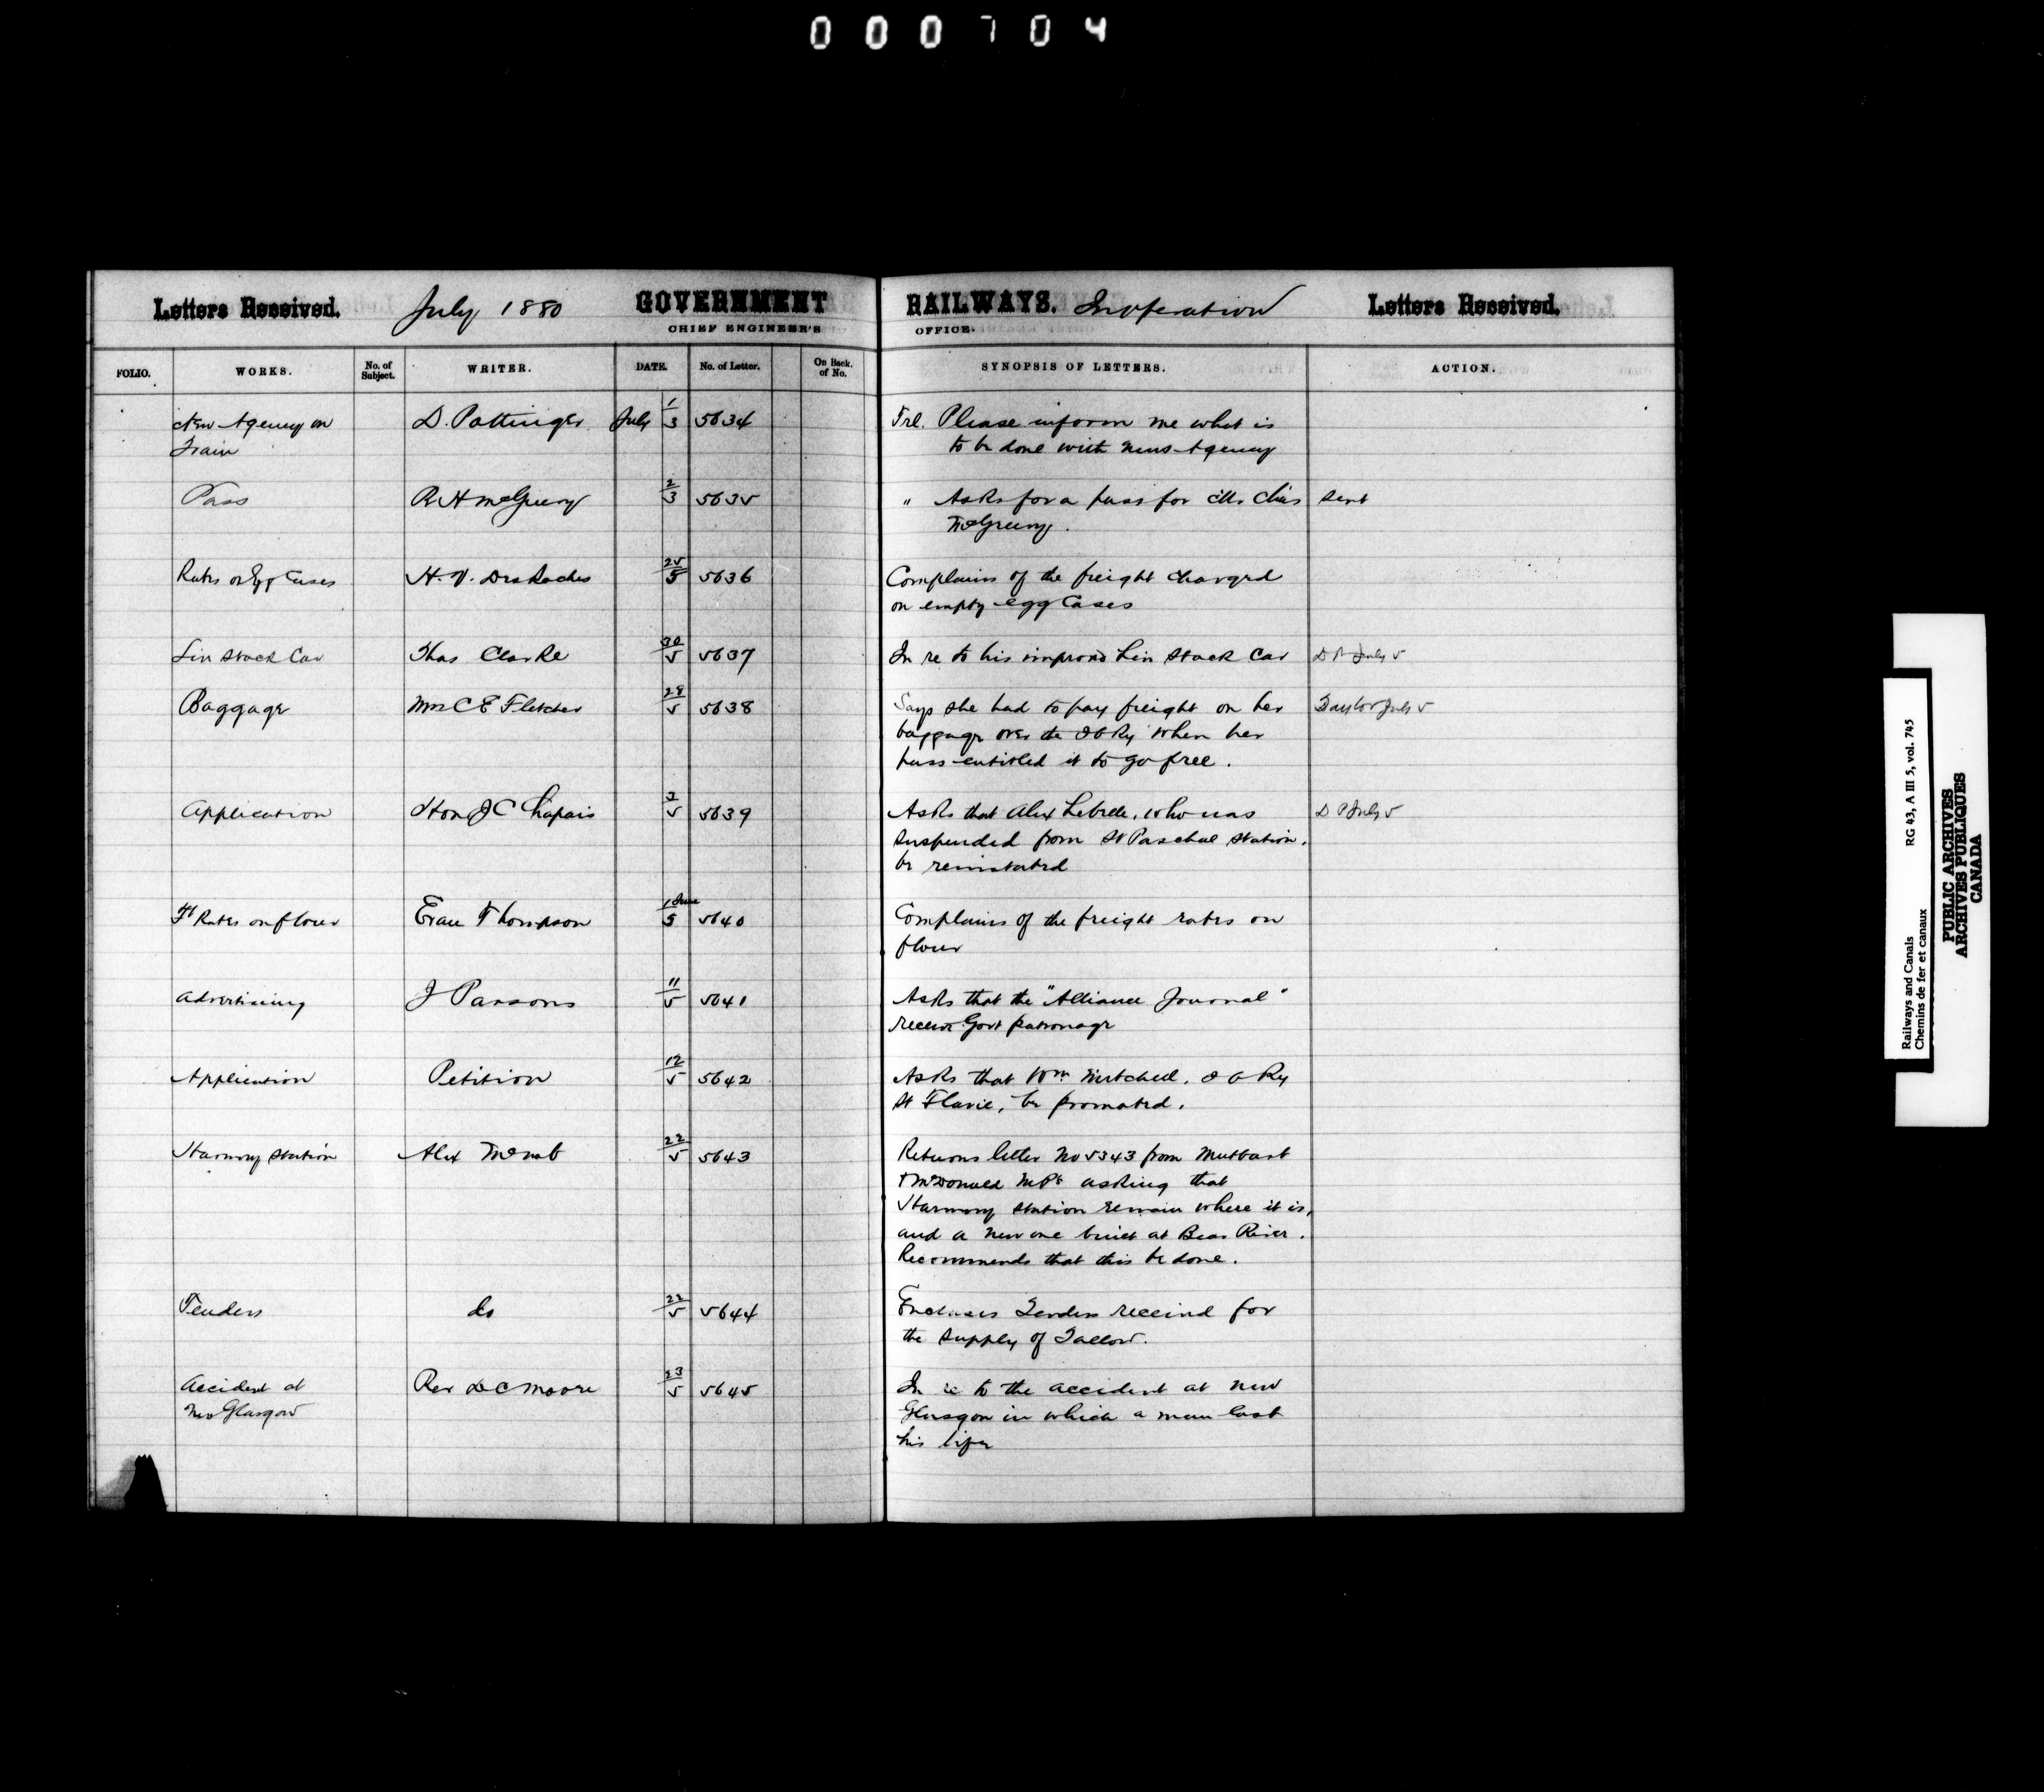 000704
Letters Received. July 1880 GOVERNMENT RAILWAYS. In operation Letters Received.
CHIEF ENGINEER'S OFFICE.
FOLIO. WORKS. No. of Subject. WRITER. DATE. No. of Letter. On Back. of No. SYNOPSIS OF LETTERS. ACTION.
New Agency on D. Pottinger July 1/3 5634 Tel. Please inform me what is
Train to be done with news Agency
Pass R H McGreevy 2/3 5635 " Asks for a pass for Mr Chas sent
McGreevy.
Rates on Egg Cases H. V. DesRoches 25/5 5636 Complains of the freight charged
on empty egg cases
Liv Stock Car Thos Clarke 30/5 5637 In re to his improvd Liv Stock Car D P July 5
Baggage Mrs C E Fletcher 28/5 5638 Says she had to pay freight on her Taylor July 5
baggage over the I C Ry when her
pass entitled it to go free.
Application Hon J C Chapais 2/5 5639 Asks that Alex Lebelle, who was D P July 5
suspended from St Paschal station,
be reinstated
Ft Rates on flour Evan Thompson 1 June/5 5640 Complains of the freight rates on
flour
Advertising J Parsons 11/5 5641 Asks that the "Alliance Journal"
receive Govt patronage
Application Petition 12/5 5642 Asks that Wm Mitchell, I C Ry
St Flavie, be promoted.
Harmony Station Alex McNab 22/5 5643 Returns letter No 5343 from Muttart
& McDonald M.Ps asking that
Harmony station remain where it is,
and a new one built at Bear River.
Recommends that this be done.
Tenders do 22/5 5644 Encloses Tenders received for
the supply of Tallow.
Accident at Rev D C Moore 23/5 5645 In re to the accident at New
New Glasgow Glasgow in which a man lost
his life
Railways and Canals RG 43, A III 5, vol. 745
Chemins de fer et canaux
PUBLIC ARCHIVES
ARCHIVES PUBLIQUES
CANADA